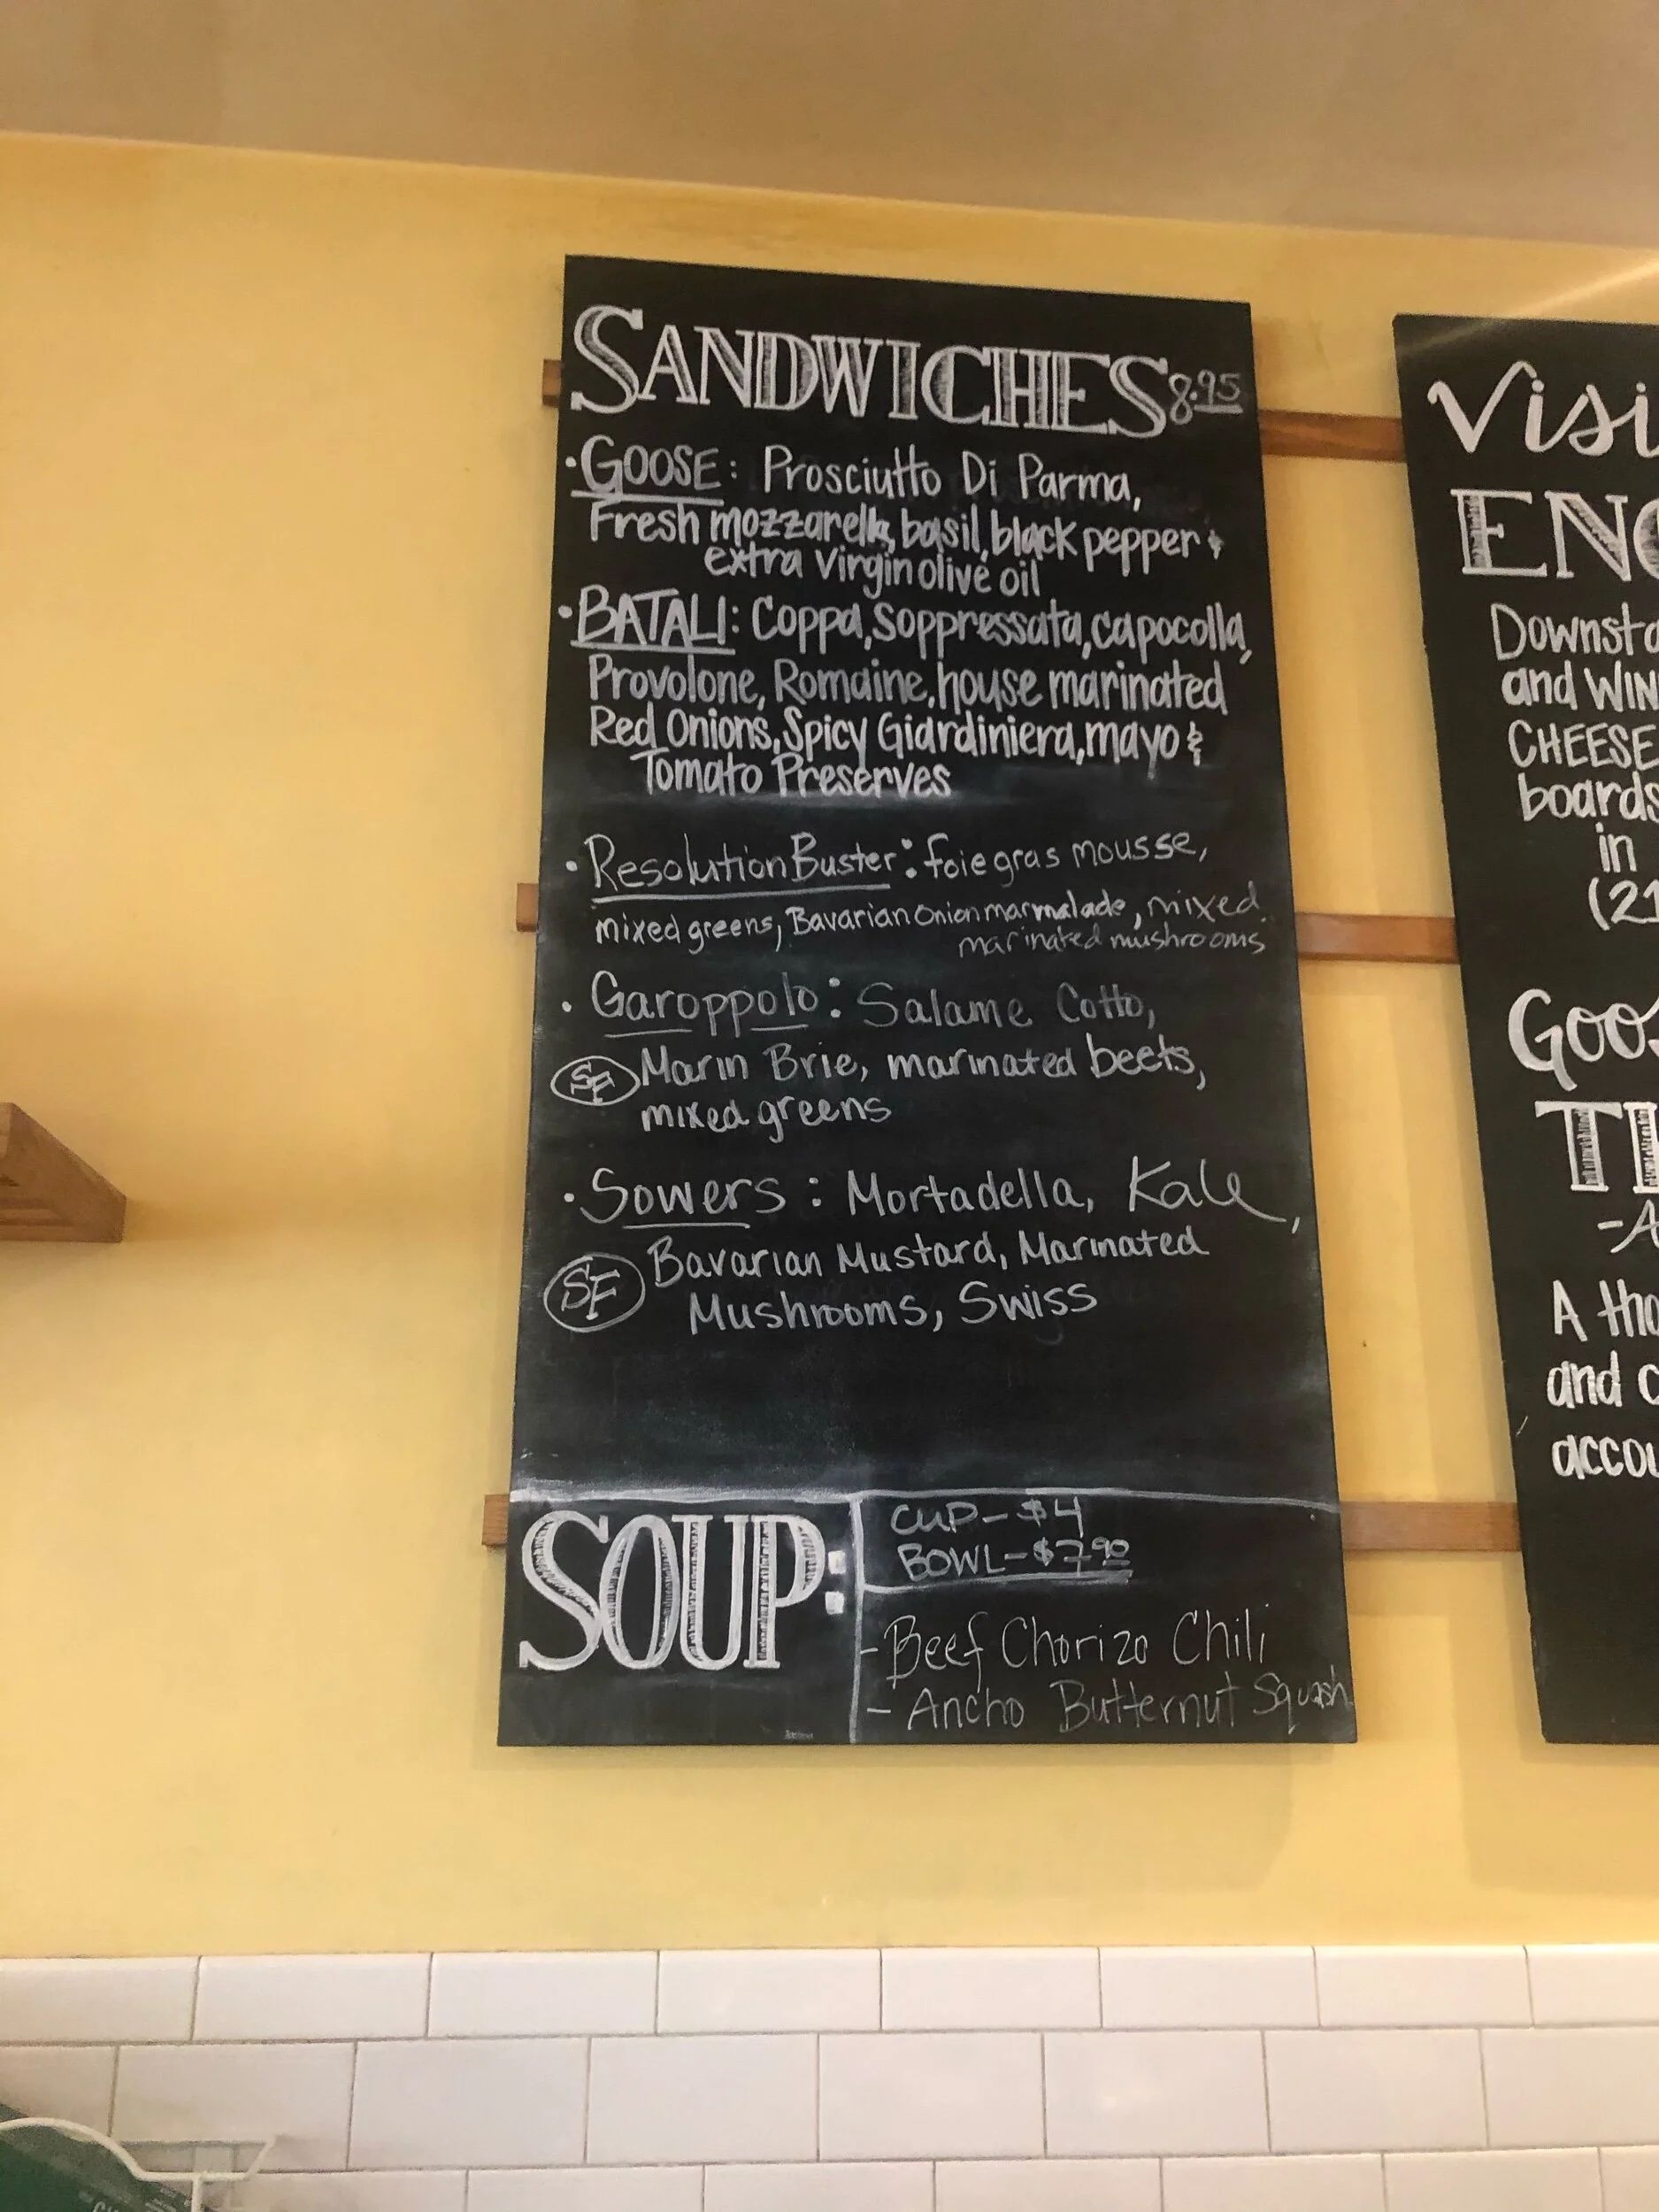 SANDWICHES 8.95
• GOOSE: Prosciutto Di Parma,
Fresh mozzarella, basil, black pepper &
extra virgin olive oil
• BATALI: Coppa, Soppressata, capocolla,
Provolone, Romaine, house marinated
Red Onions, Spicy Giardiniera, mayo &
Tomato Preserves
• Resolution Buster: foie gras mousse,
mixed greens, Bavarian Onion marmalade, mixed
marinated mushrooms
• Garoppolo: Salame Cotto,
SF Marin Brie, marinated beets,
mixed greens
• Sowers: Mortadella, Kale,
SF Bavarian Mustard, Marinated
Mushrooms, Swiss
SOUP:
CUP - $4
BOWL - $7.90
- Beef Chorizo Chili
- Ancho Butternut Squash
Visi
EN
Downsta
and WIN
CHEESE
boards
in
(21
Goos
TI
- A
A tho
and c
accou